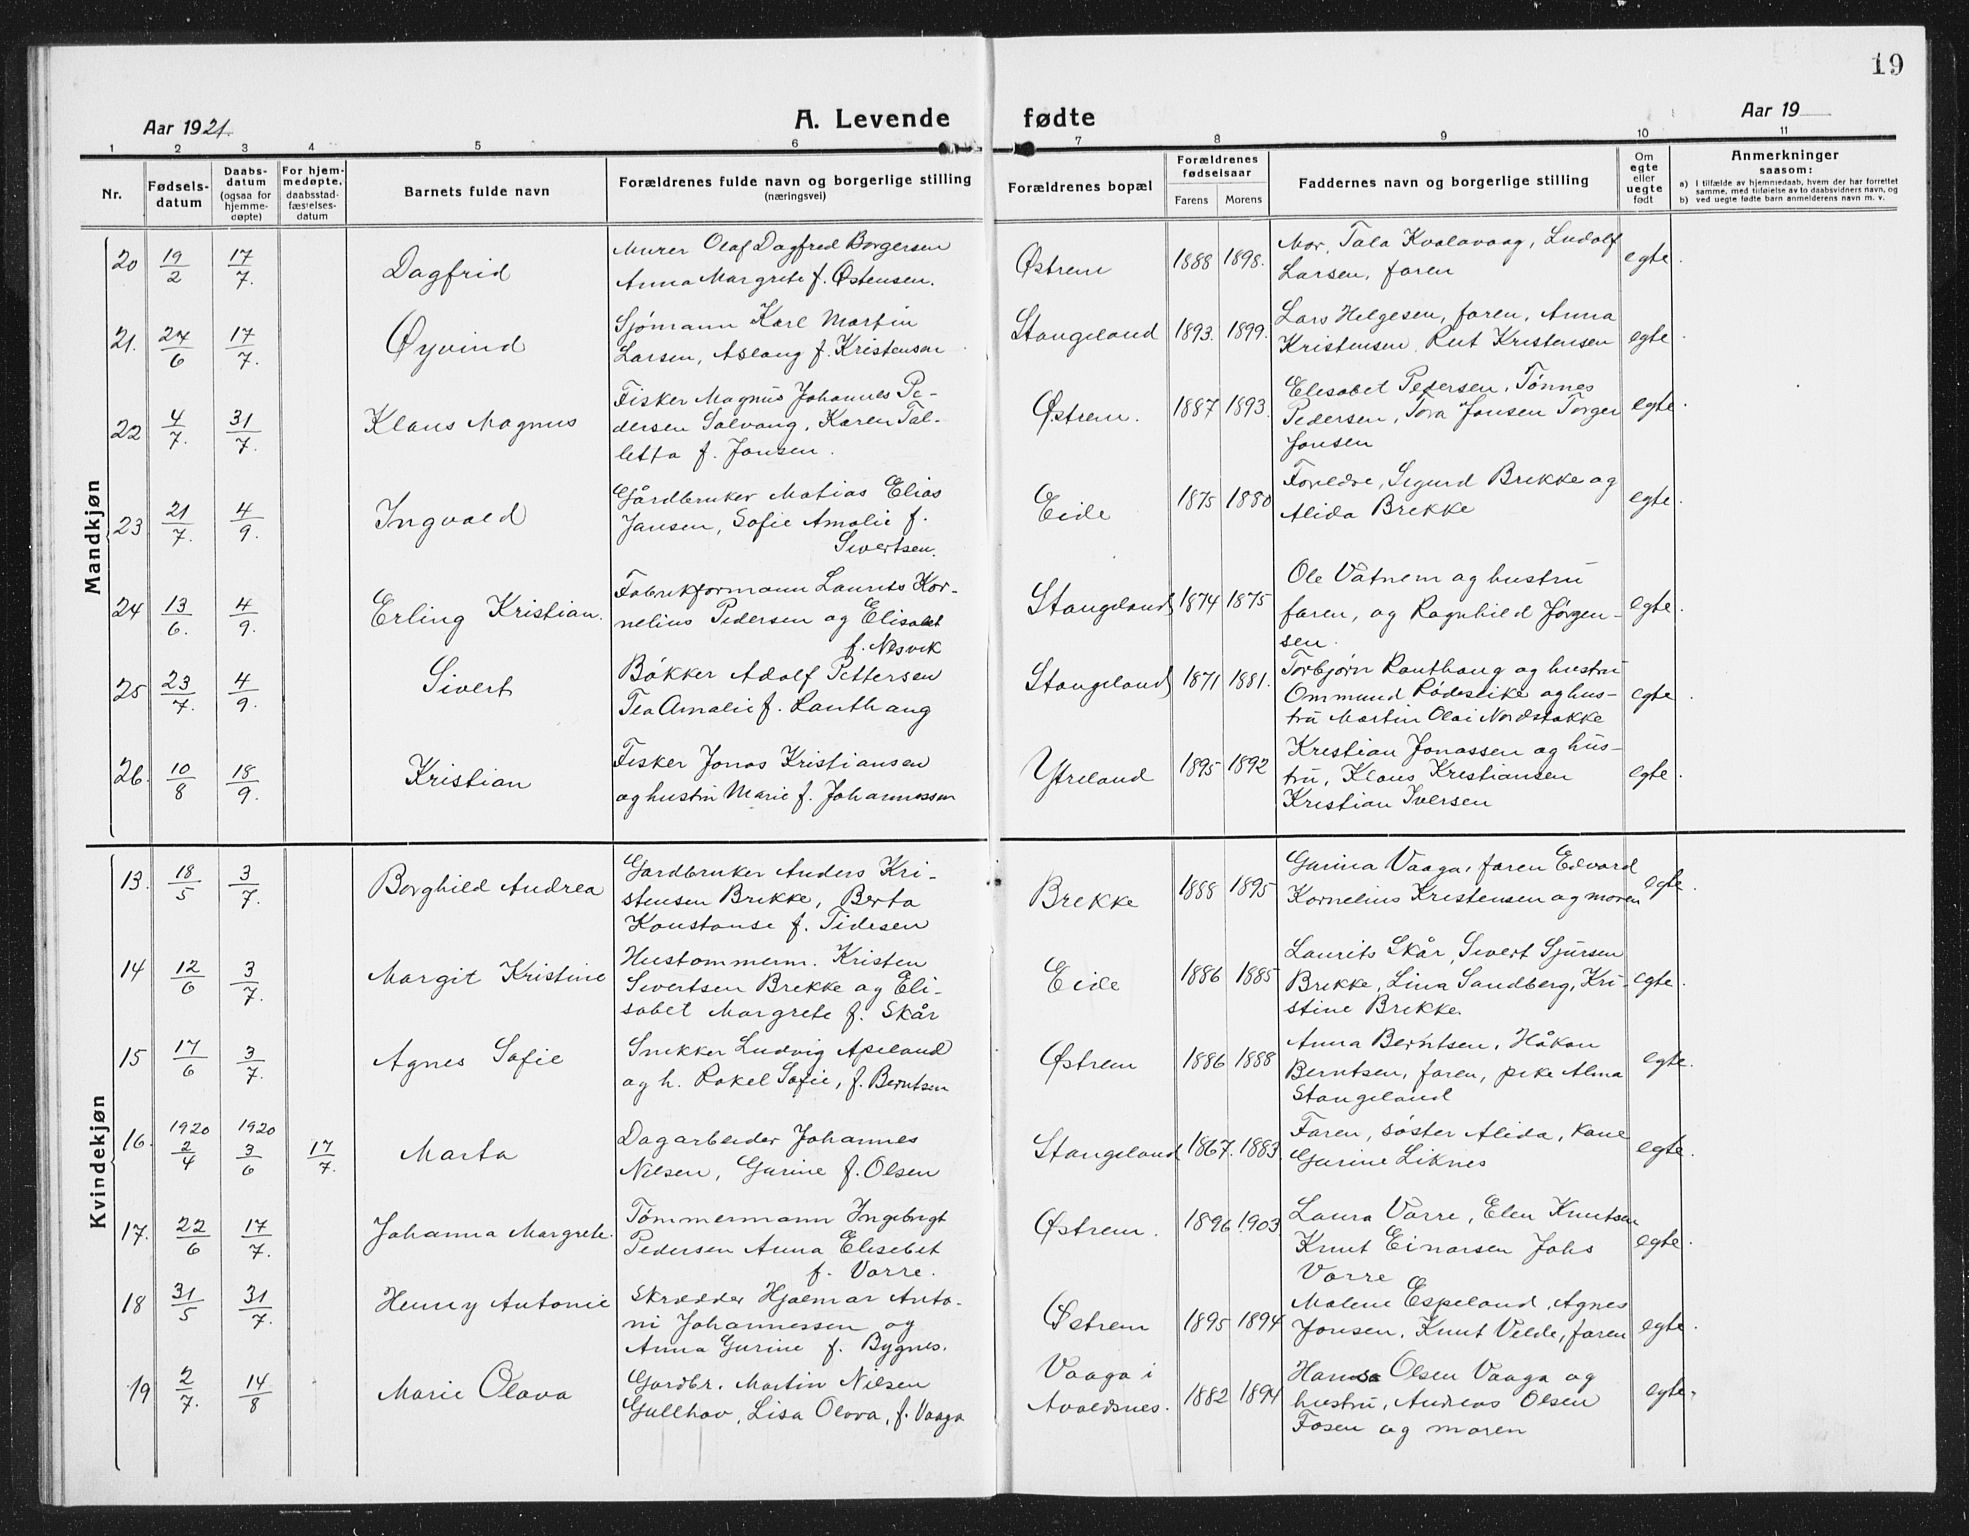 19
Aar 1921.
A. Levende
fødte
Aar 19
1 2 3 4 5 6 7 8 9 10 11
Nr.
Fødsels-
datum
Daabs-
datum
(ogsaa for
hjemme-
døpte)
For hjem-
medøpte,
daabsstad-
fæstelses-
datum
Barnets fulde navn
Forældrenes fulde navn og borgerlige stilling
(næringsvei)
Forældrenes bopæl
Forældrenes
fødselsaar
Farens Morens
Faddernes navn og borgerlige stilling
Om
egte
eller
uegte
født
Anmerkninger
saasom:
a) I tilfælde av hjemmedaab, hvem der har forrettet
samme, med tilføielse av to daabsvidners navn, og
b) ved uegte fødte barn anmelderens navn m. v.
Mandkjøn
20 19/2 17/7. Dagfrid
Murer Olaf Dagfred Borgersen
Anna Margrete f. Østensen.
Østrem 1888 1898.
Mor, Tala Kvalavaag, Ludolf
Larsen, faren
egte.
21. 27/6 17/7. Øyvind
Sjømann Karl Martin
Larsen, Aslaug f. Kristensen
Stangeland 1893. 1899.
Lars Helgesen, faren, Anna
Kristensen, Rut Kristensen
egte
22 4/7. 31/7. Klaus Magnus
Fisker Magnus Johannes Pe-
dersen Solvang, Karen Tal-
letta f. Jansen.
Østrem. 1887 1893.
Elisabet Pedersen, Tønnes
Pedersen, Tora Jansen Torger
Jansen
egte.
23 21/7. 4/9. Ingvald
Gårdbruker Matias Elias
Jansen, Sofie Amalie f.
Sivertsen.
Eide 1875 1880
Foreldre, Sigurd Brekke og
Alida Brekke
egte.
24 13/6. 4/9. Erling Kristian.
Fabrikformann Laurits Kor-
nelius Pedersen og Elisabet
f. Nesvik
Stangeland 1874 1875
Ole Vatnem og hustru
faren, og Ragnhild Jørgen-
sen.
egte.
25 23/7. 4/9. Sivert
Bakker Adolf Pettersen
Tea Amalie f. Rauthaug
Stangeland 1871 1881.
Torbjørn Rauthaug og hustru
Ommund og hus-
tru Martin Olai Nordstokke
egte.
26. 10/8 18/9. Kristian
Fisker Jonas Kristiansen
og hustru Marie f. Johannessen
Ytreland 1895 1892
Kristian Jonassen og hus-
tru, Klaus Kristiansen
Kristian Iversen
egte.
Kvindekjøn
13. 18/5 3/7. Borghild Andrea
Gardbruker Anders Kri-
stensen Brekke, Berta
Konstanse f. Tidesen
Brekke 1888 1895
Gurina Vaaga, faren Edvard
Kornelius Kristensen og moren
egte.
14 12/6 3/7. Margit Kristine
Hustømmerm. Kristen
Sivertsen Brekke og Eli-
sabet Margrete f. Skår
Eide 1886 1885
Laurits Skår, Sivert Sjursen
Brekke, Lina Sandberg, Kri-
stine Brekke.
egte.
15 17/6 3/7. Agnes Sofie
Snekker Ludvig Apeland
og h. Rakel Sofie, f. Berntsen
Østrem 1886 1888
Anna Berntsen, Håkon
Berntsen, faren, pike Alma
Stangeland
egte.
16. 1920 2/4 1920 3/6 17/7. Marta
Dagarbeider Johannes
Nilsen, Gurine f. Olsen
Stangeland 1867. 1883.
Faren, søster Alida, kone
Gurine Liknes
egte.
17. 22/6 17/7. Johanna Margrete.
Tømmermann Ingebrigt
Pedersen Anna Elisebet
f. Vorre.
Østrem. 1896. 1903.
Laura Vorre, Elen Knutsen
Knut Einarsen Johs
Vorre
egte.
18 31/5 31/7. Henny Antonie
Skrædder Hjalmar Anto-
ni Johannessen og
Anna Gurine f. Bygnes.
Østrem 1895 1894
Malene Espeland, Agnes
Jonsen, Knut Velde, faren
egte.
19 2/7. 14/8 Marie Olava
Gardbr. Martin Nilsen
Gullhav, Lisa Olava, f. Vaaga
Vaaga i
Avaldsnes. 1882 1894
Olsen Vaaga og
hustru, Andreas Olsen
Fosen og moren
egte.